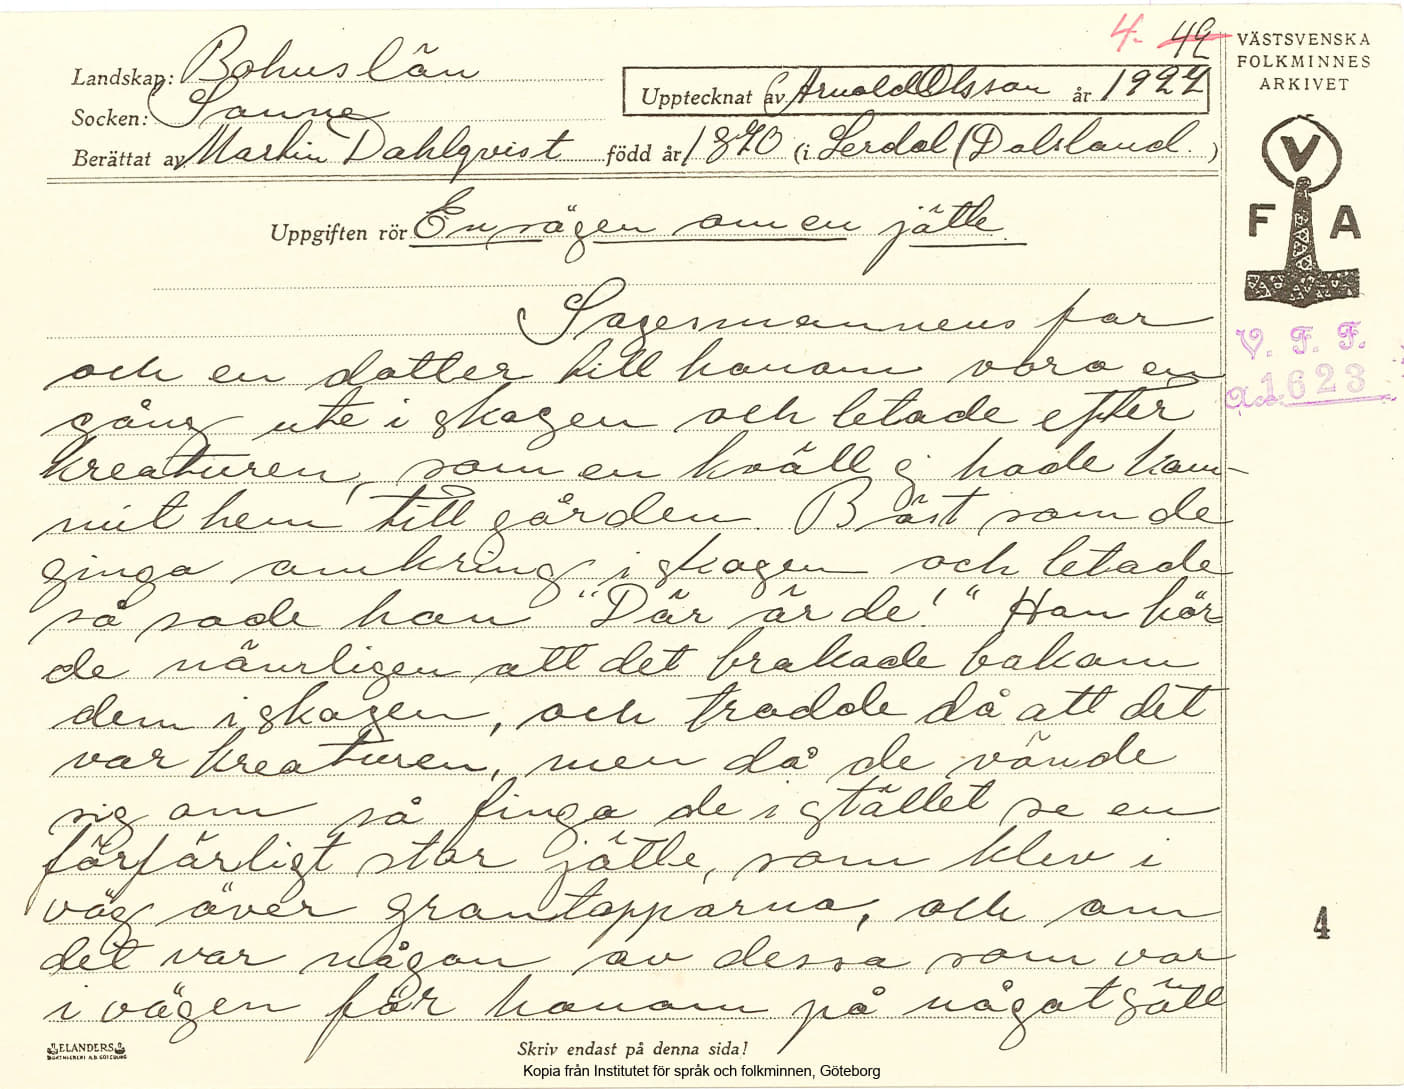 4. 49
VÄSTSVENSKA
FOLKMINNES
ARKIVET
Landskap: Bohuslän
Upptecknat av Arnold Olsson år 1927
Socken: Sanne
Berättat av Martin Dahlqvist född år 1870 (i Lerdal (Dalsland.)
V
F A
Uppgiften rör En sägen om en jätte.
Sagesmannens far
och en dotter till honom voro en
gång ute i skogen och letade efter
kreaturen, som en kväll ej hade kom-
mit hem till gården Bäst som de
ginga omkring i skogen och letade
så sade han "Där är de!" Han hör
de nämligen att det brakade bakom
dem i skogen, och trodde då att det
var kreaturen, men då de vände
sig om så finga de i stället se en
förfärligt stor jätte, som klev i
väg över grantopparna, och om
det var någon av dessa som var
i vägen för honom på något säll
V. F. F.
1623
4
ELANDERS
Skriv endast på denna sida!
Kopia från Institutet för språk och folkminnen, Göteborg